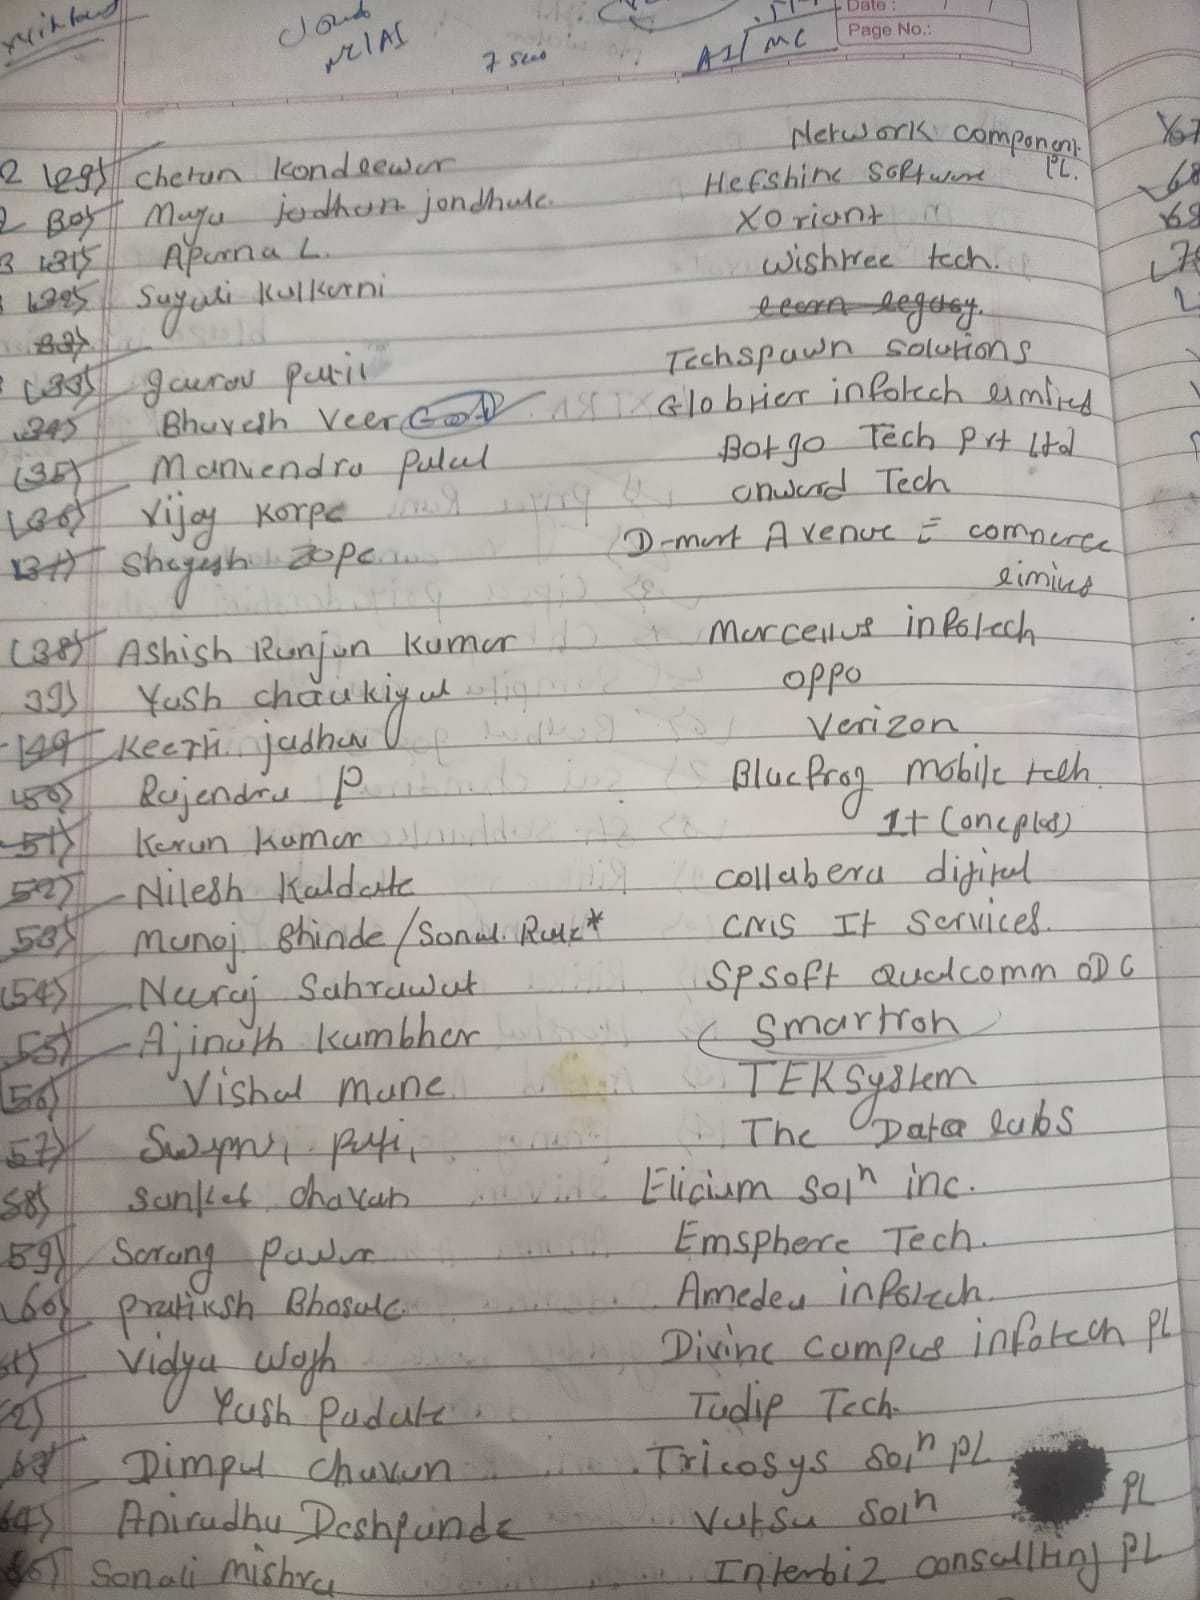 Date :
Page No.:
Cloud
7 sem
AI/MC
29) Chetan Kondeewar Network component PL.
30) Maya jondhale Hefshine Software
31) Aparna L. Xoriant "
32) Sayali Kulkarni Wishtree tech.
33) learn legacy.
(33) gaurav patil Techspawn solutions
34) Bhavesh Veer Good Globrier infotech limited
(35) Manvendra Palal Botgo Tech Pvt Ltd
(36) Vijay Korpe onward Tech
37) Shayesh Zope D-mart Avenue E commerce
limited
(38) Ashish Ranjan Kumar Marcellus infotech
39) Yash chaukiyal oppo
49 Keerti jadhav Verizon
50) Rajendra P Bluefrog mobile tech
51) Karan Kumar 1+ (oneplus)
52) Nilesh Kaldate collabera digital
53) Manoj Shinde/Sonal * CMS It Services.
54) Neeraj Sahrawat SPSoft Qualcomm ODC
55) Ajinath Kumbhar Smartron
56) Vishal Mane TEKSystem
57) patil The Data labs
58) Sanket Chavan Elicium Solⁿ inc.
59) Sarang Pawar Emsphere Tech.
60) Pratiksh Bhosale. Amedea infotech.
61) Vidya Wagh Divine Campus infotech PL
62) Yash Padate. Tudip Tech.
63) Dimpal Chavan Tricosys Solⁿ PL
64) Anirudha Deshpande Vatsa Solⁿ PL
65) Sonali Mishra Interbiz consulting PL
67
68
69